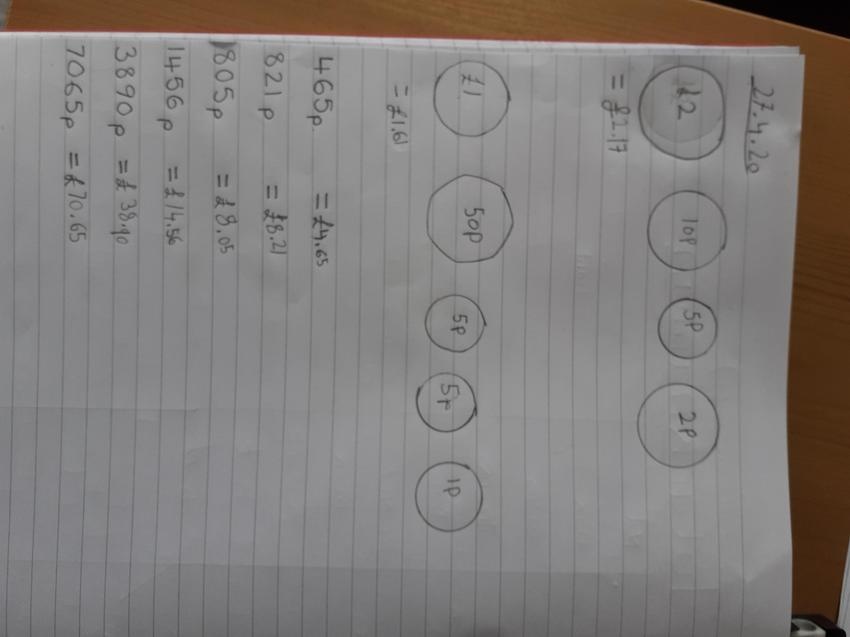 27.4.20
£2 10p 5p 2p
= £2.17
£1 50p 5p 5p 1p
= £1.61
465p = £4.65
821p = £8.21
805p = £8.05
1456p = £14.56
3890p = £38.90
7065p = £70.65